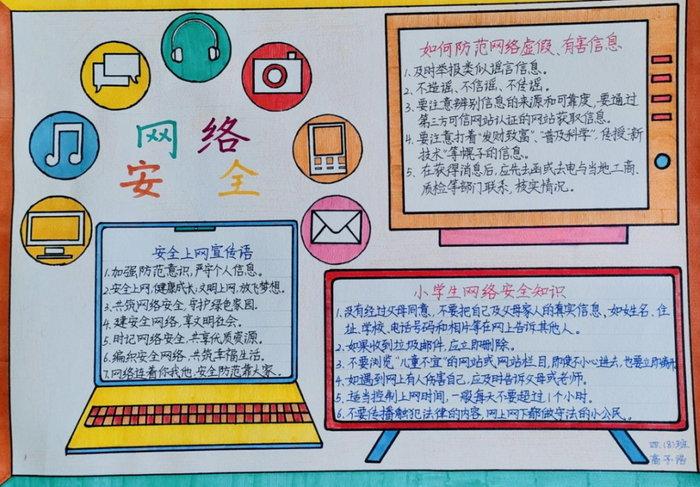 网络
安全
如何防范网络虚假、有害信息
1.及时举报类似谣言信息。
2.不造谣、不信谣、不传谣。
3.要注意辨别信息的来源和可靠度，要通过
第三方可信网站认证的网站获取信息。
4.要注意打着"发财致富"、"普及科学"、传授"新
技术"等幌子的信息。
5.在获得消息后，应先去函或去电与当地工商、
质检等部门联系，核实情况。
安全上网宣传语
1.加强防范意识，严守个人信息。
2.安全上网，健康成长；文明上网，放飞梦想。
3.共筑网络安全，守护绿色家园。
4.建安全网络，享文明社会。
5.时记网络安全，共享优质资源。
6.编织安全网络，共筑幸福生活。
7.网络连着你我他，安全防范靠大家。
小学生网络安全知识
1.没有经过父母同意，不要把自己及父母家人的真实信息，如姓名、住
址、学校、电话号码和相片等在网上告诉其他人。
2.如果收到垃圾邮件，应立即删除。
3.不要浏览"儿童不宜"的网站或网站栏目，即使不小心进去，也要立即离开
4.如遇到网上有人伤害自己，应及时告诉父母或老师。
5.适当控制上网时间，一般每天不要超过1个小时。
6.不要传播触犯法律的内容，网上网下都做守法的小公民。
四（8）班
高子涵